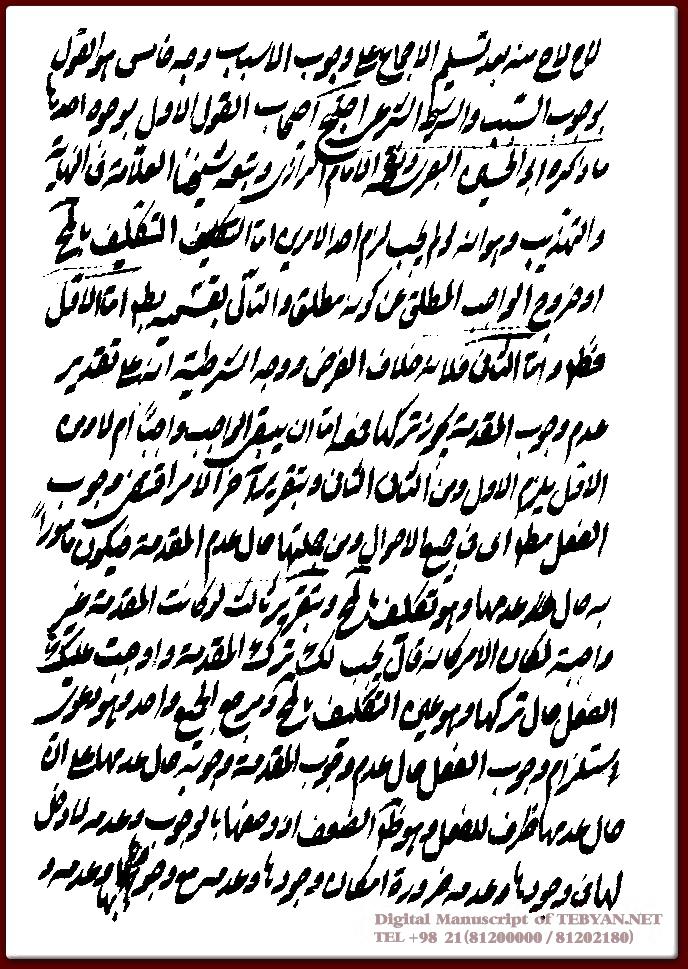 لاح لاح منه بعد تسليم الاجماع على وجوب الاسباب وجه خامس هو القول
بوجوب السبب والشرط الشرعى احتج اصحاب القول الاول بوجوه احدها
ما ذكره ابو الحسين البصرى وتبعه الامام الرازى وتبعه شيخنا العلامة فى النهاية
والتهذيب وهو انه لو لم يجب لزم احد الامرين اما التكليف بالمح
او خروج الواجب المطلق عن كونه مطلقا والتالى بقسميه بط اما الاول
فظ واما الثانى فلانه خلاف الفرض ووجه الشرطية انه على تقدير
عدم وجوب المقدمة يجوز تركها فمعه اما ان يبقى الواجب واجبا ام لا ومن
الاول يلزم الاول ومن الثانى الثانى وبتقرير آخر الامر اقتضى وجوب
الفعل مط اى فى جميع الاحوال ومن جملتها حال عدم المقدمة فيكون مامورا
به حال عدمها وهو تكليف بالمح وبتقرير ثالث لو كانت المقدمة غير
واجبة لكان الامر كانه قال يجب لك ترك المقدمة واوجبت عليك
الفعل حال تركها وهو عين التكليف بالمح ومرجع الجميع واحد وهو
استلزام وجوب الفعل حال عدم وجوب المقدمة وجوبه حال عدمها على ان
حال عدمها ظرف للفعل وهو ظ الضعف اذ وصفها بالوجوب وعدمه لا دخل
لها فى وجودها وعدمه ضرورة امكان وجودها وعدمه مع وجوبها وعدمه و
Digital Manuscript of TEBYAN.NET
TEL +98 21(81200000 / 81202180)